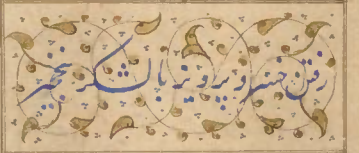 رفتن خسرو پرویز با لشکر بنخجیر